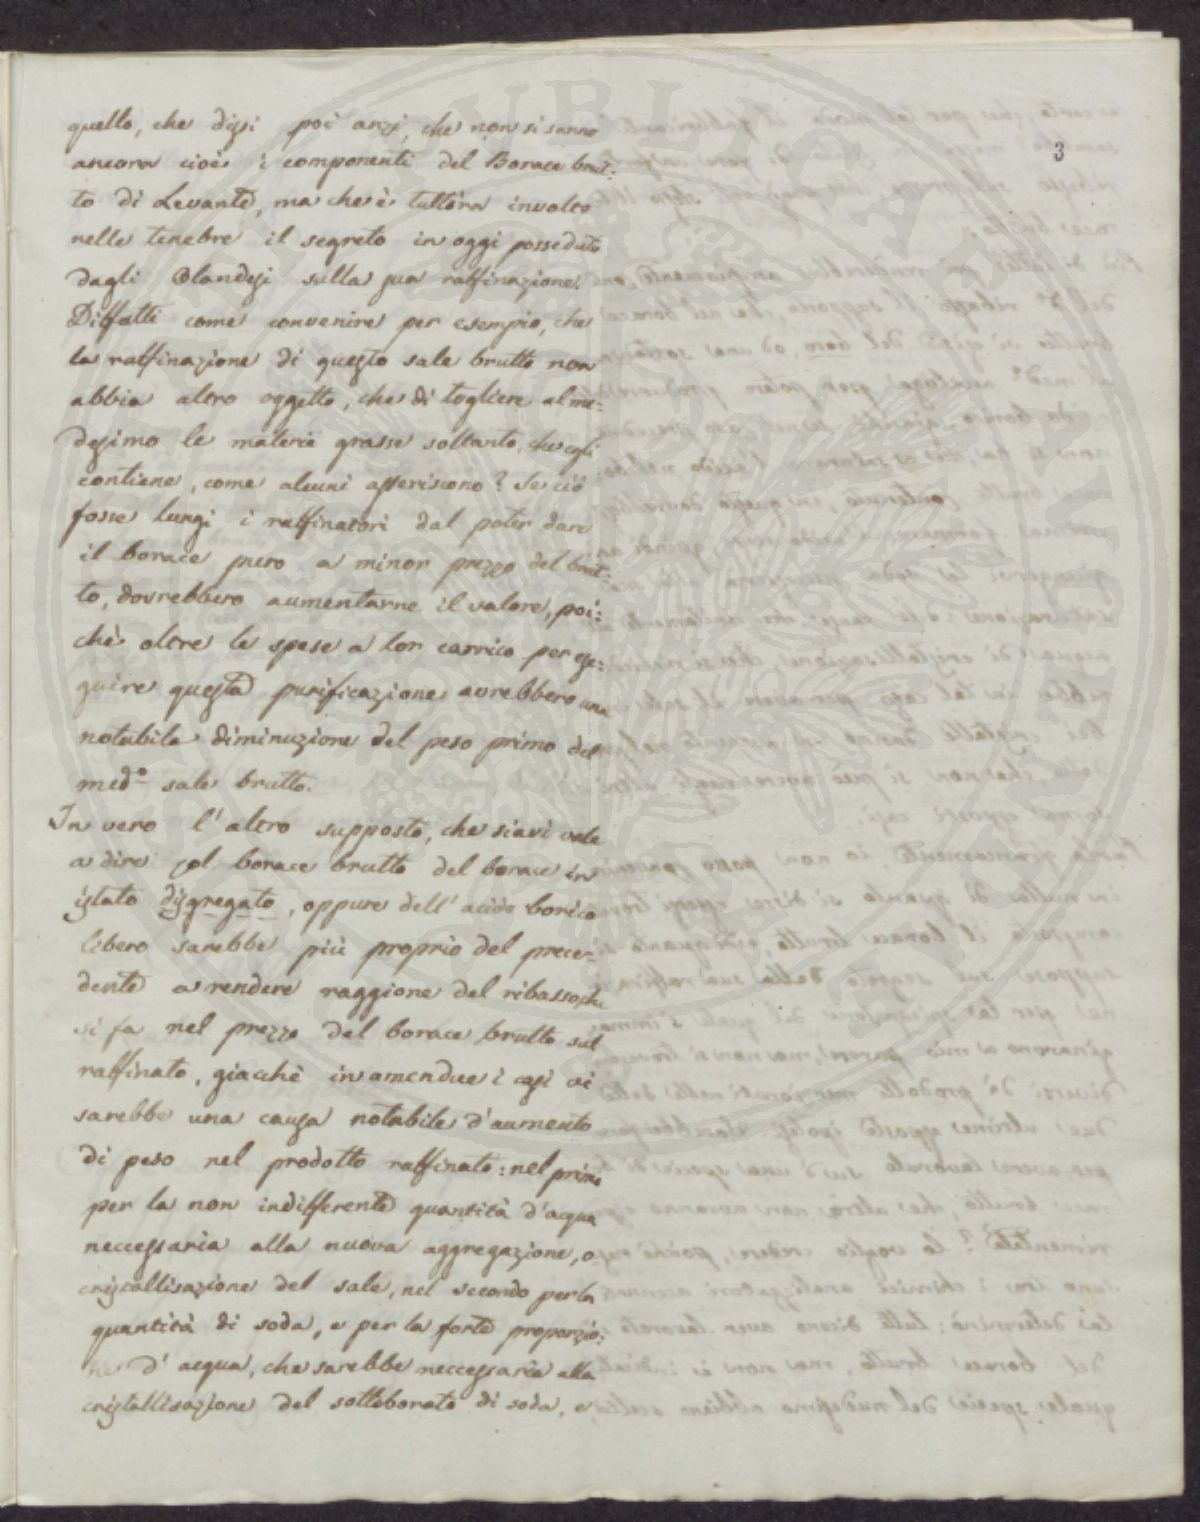 3
quello, che dissi poi anzi, che non si sanno
ancora cioè i componenti del Borace brut:
to di Levante, ma che è tuttora involto
nelle tenebre il segreto in oggi posseduto
dagli Olandesi sulla sua raffinazione.
Diffatti come convenire per esempio, che
la raffinazione di questo sale brutto non
abbia altro oggetto, che di togliere al me:
desimo le materie grasse soltanto, che egli
contiene, come alcuni asseriscono? Se ciò
fosse lungi i raffinatori dal poter dare
il borace puro a minor prezzo del brut:
to, dovrebbero aumentarne il valore, poi:
chè oltre le spese a lor carrico per ese:
guire questa purificazione avrebbero una
notabile diminuzione del peso primo del
med.º sale brutto.
In vero l'altro supposto, che siavi vale
a dire col borace brutto del borace in
istato disgregato, oppure dell'acido borico
libero sarebbe più proprio del prece:
dente a rendere raggione del ribasso, che
si fa nel prezzo del borace brutto sul
raffinato, giacchè in amendue i casi vi
sarebbe una causa notabile d'aumento
di peso nel prodotto raffinato: nel primo
per la non indifferente quantità d'acqua
necessaria alla nuova aggregazione, o
cristallisazione del sale, nel secondo per la
quantità di soda, e per la forte proporzio:
ne d'acqua, che sarebbe neccessaria alla
cristallisazione del sottoborato di soda, e